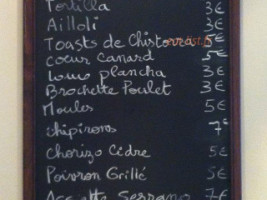 Tortilla 3€
Ailloli 3€
Toasts de Chistorras 5€
coeur canard 5€
lomo plancha 3€
Brochette Poulet 3€
Moules 5€
chipirons 7€
Chorizo Cidre 5€
Poivron Grillé 5€
Assiette Serrano 7€